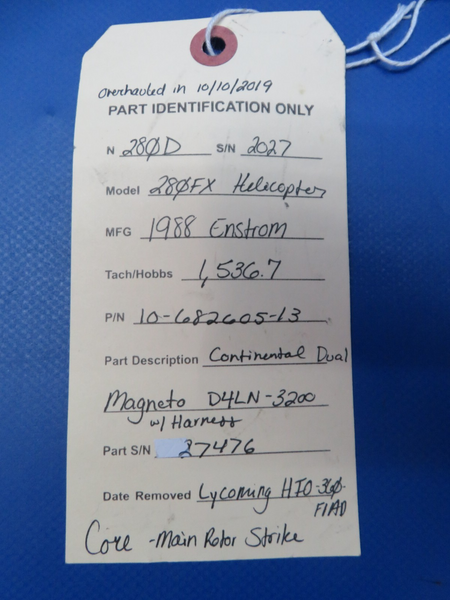 Overhauled in 10/10/2019
PART IDENTIFICATION ONLY
N 280D S/N 2027
Model 280FX Helicopter
MFG 1988 Enstrom
Tach/Hobbs 1,536.7
P/N 10-682605-13
Part Description Continental Dual
Magneto D4LN-3200
w/ Harness
Part S/N 27476
Date Removed Lycoming HIO-360-
F1AD
Core - Main Rotor Strike